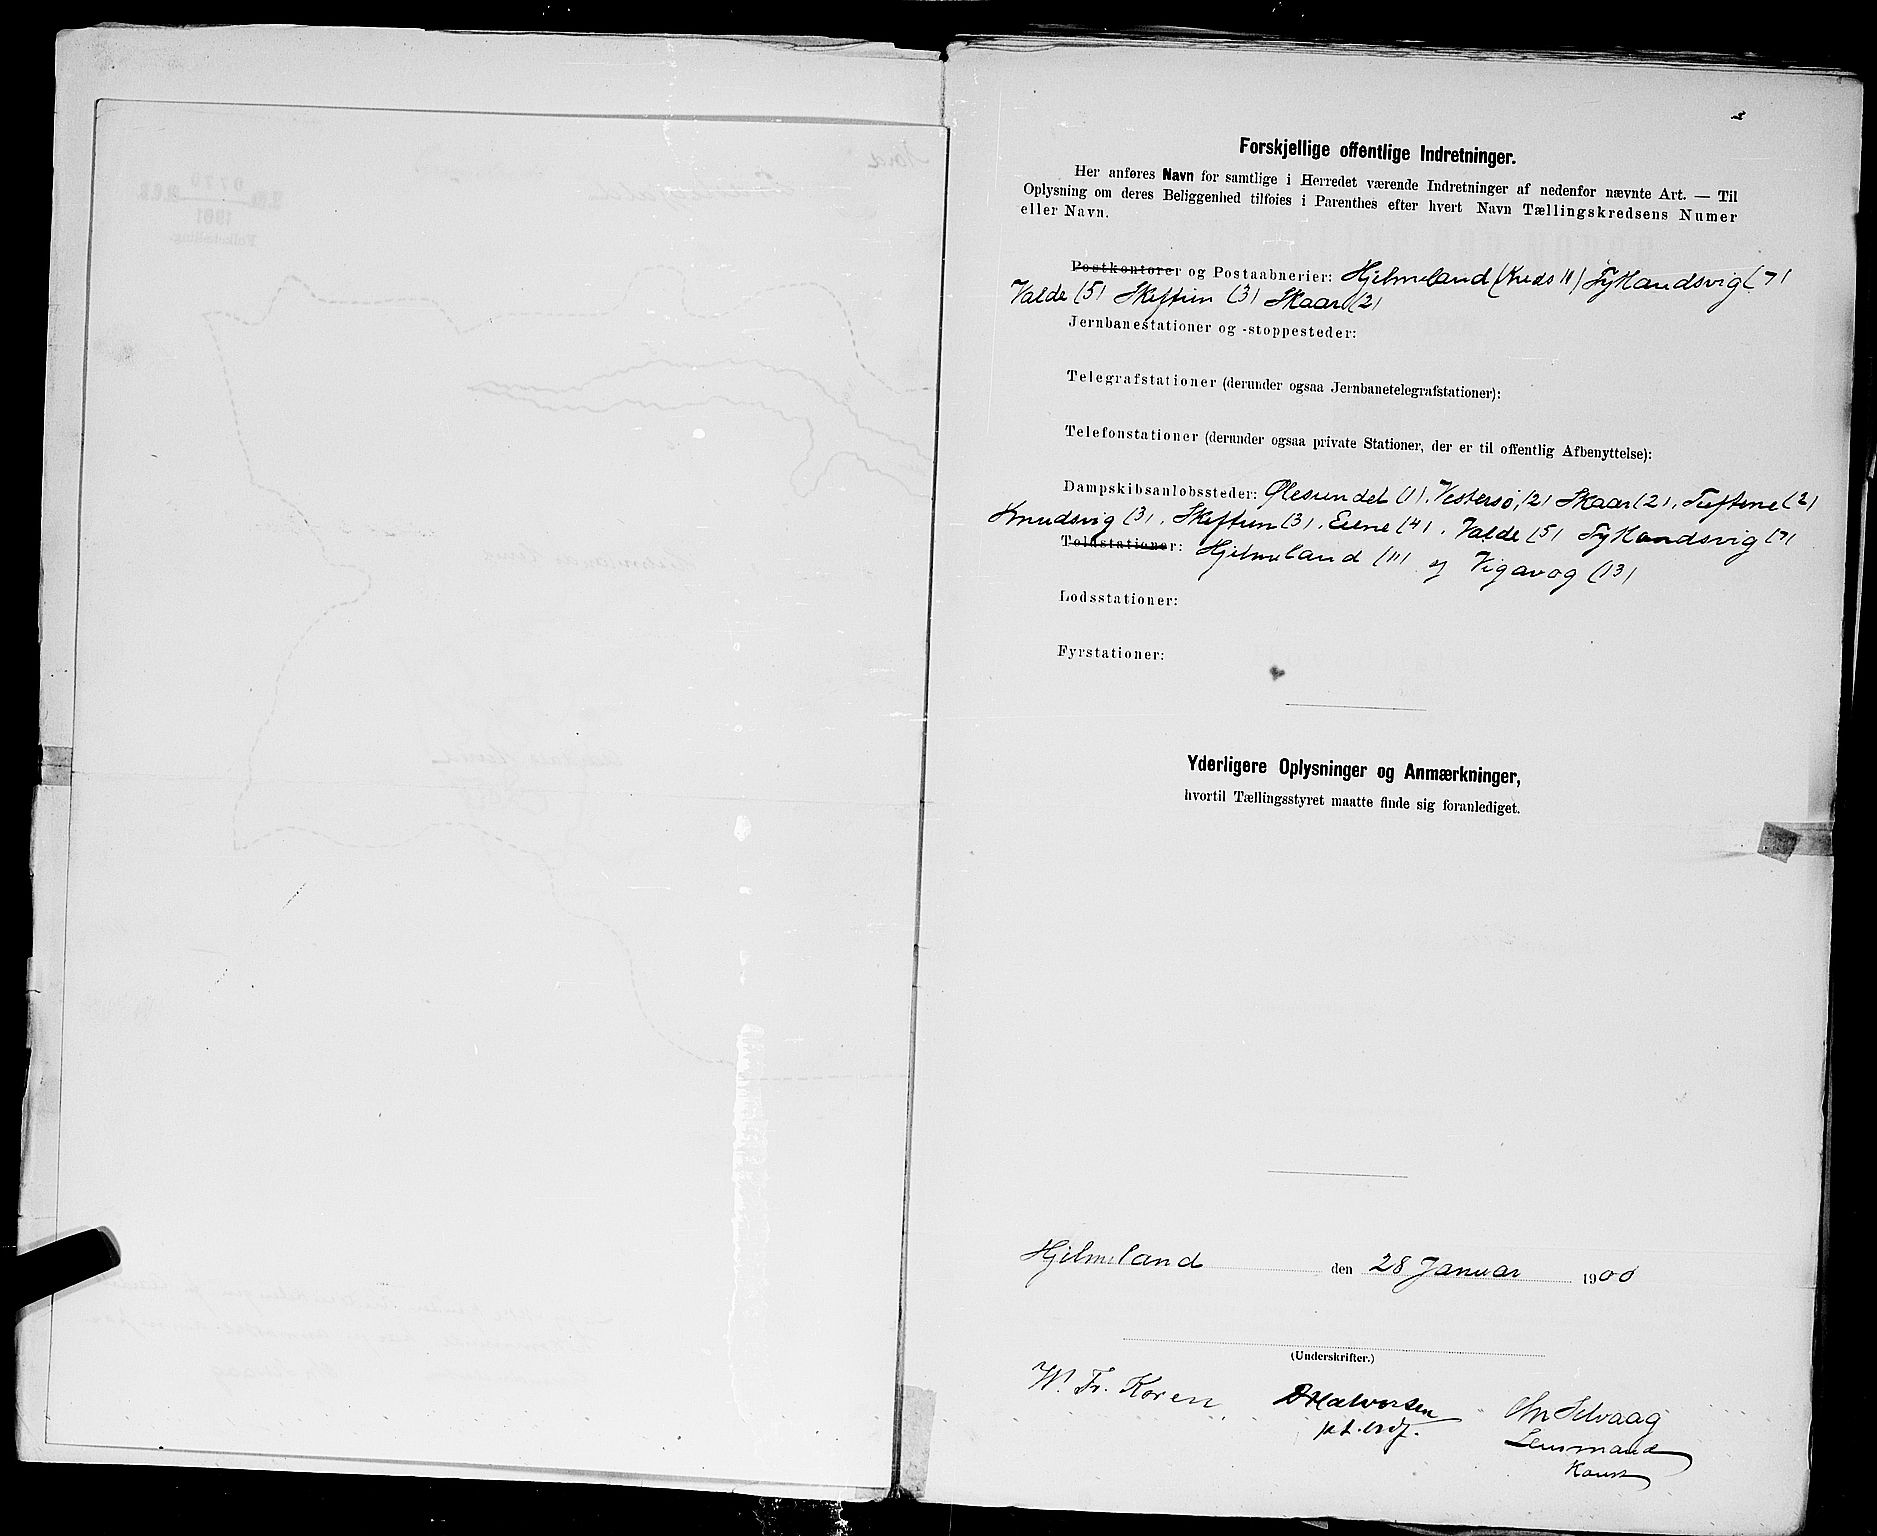 Forskjellige offentlige Indretninger.
Her anføres Navn for samtlige i Herredet værende Indretninger af nedenfor nævnte Art. — Til
Oplysning om deres Beliggenhed tilføies i Parenthes efter hvert Navn Tællingskredsens Numer
eller Navn.
Postkontorer og Postaabnerier: Hjelmeland (Kreds 11) Fyllandsvig (7)
Valde (5) Skiftun (3) Skaar (2)
Jernbanestationer og -stoppesteder:
Telegrafstationer (derunder ogsaa Jernbanetelegrafstationer):
Telefonstationer (derunder ogsaa private Stationer, der er til offentlig Afbenyttelse):
Dampskibsanløbssteder: Olesundet (1), Vestersø, (2) Skaar (2), Tuftene (2)
Knudsvig (3), Skiftun (3), Eiene (4), Valde (5) Fyllandsvig (7)
Toldstationer: Hjelmeland (11) og Vigavog (13)
Lodsstationer:
Fyrstationer:
Yderligere Oplysninger og Anmærkninger,
hvortil Tællingsstyret maatte finde sig foranlediget.
Hjelmeland den 28 Januar 1900
(Underskrifter.)
W. Fr. Koren D Halvorsen Chr Selvaag
Lensmand
Konst